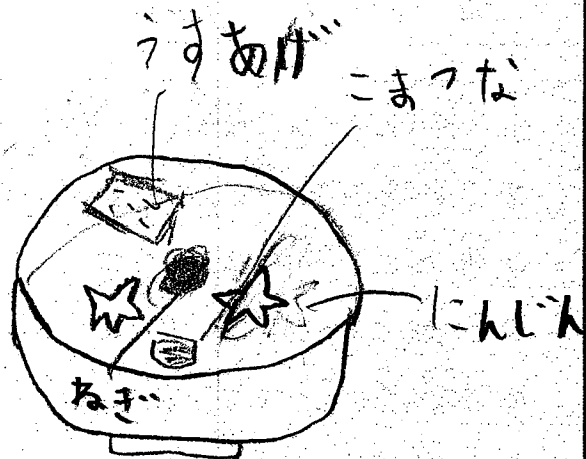 うすあげ
こまつな
にんじん
ねぎ